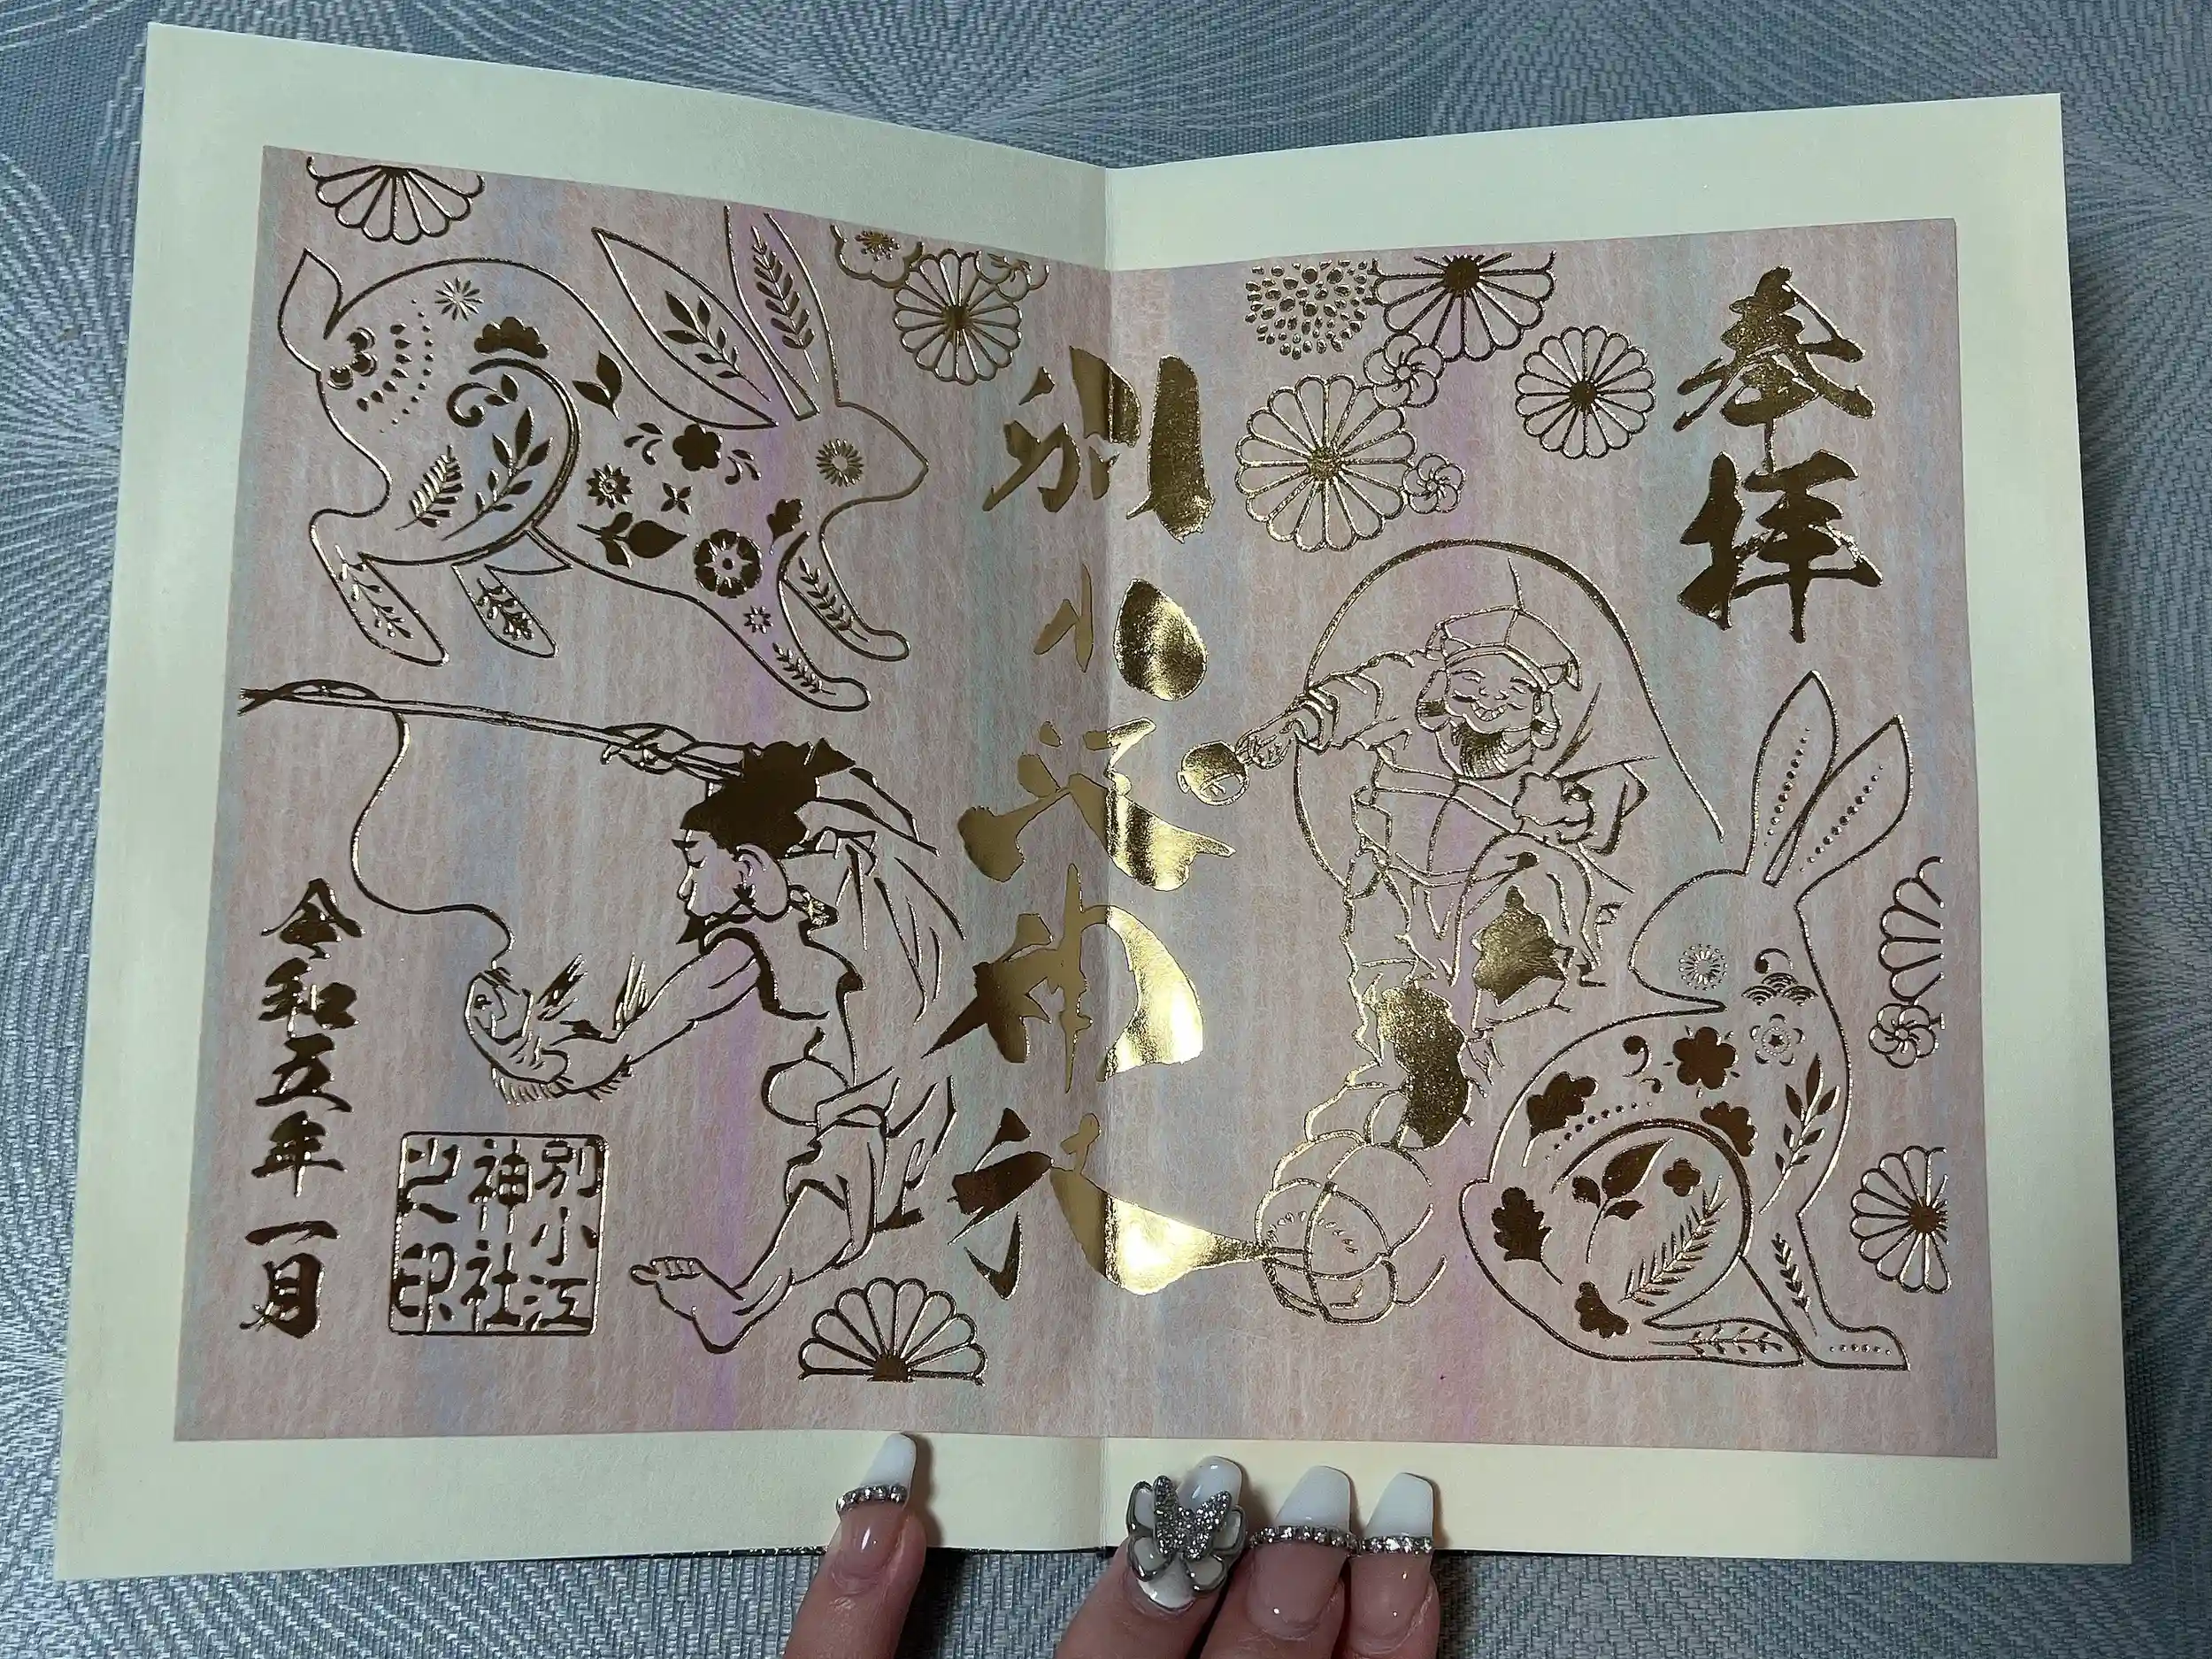 奉拝
別小江神社
令和五年一月
別小江
神社
之印